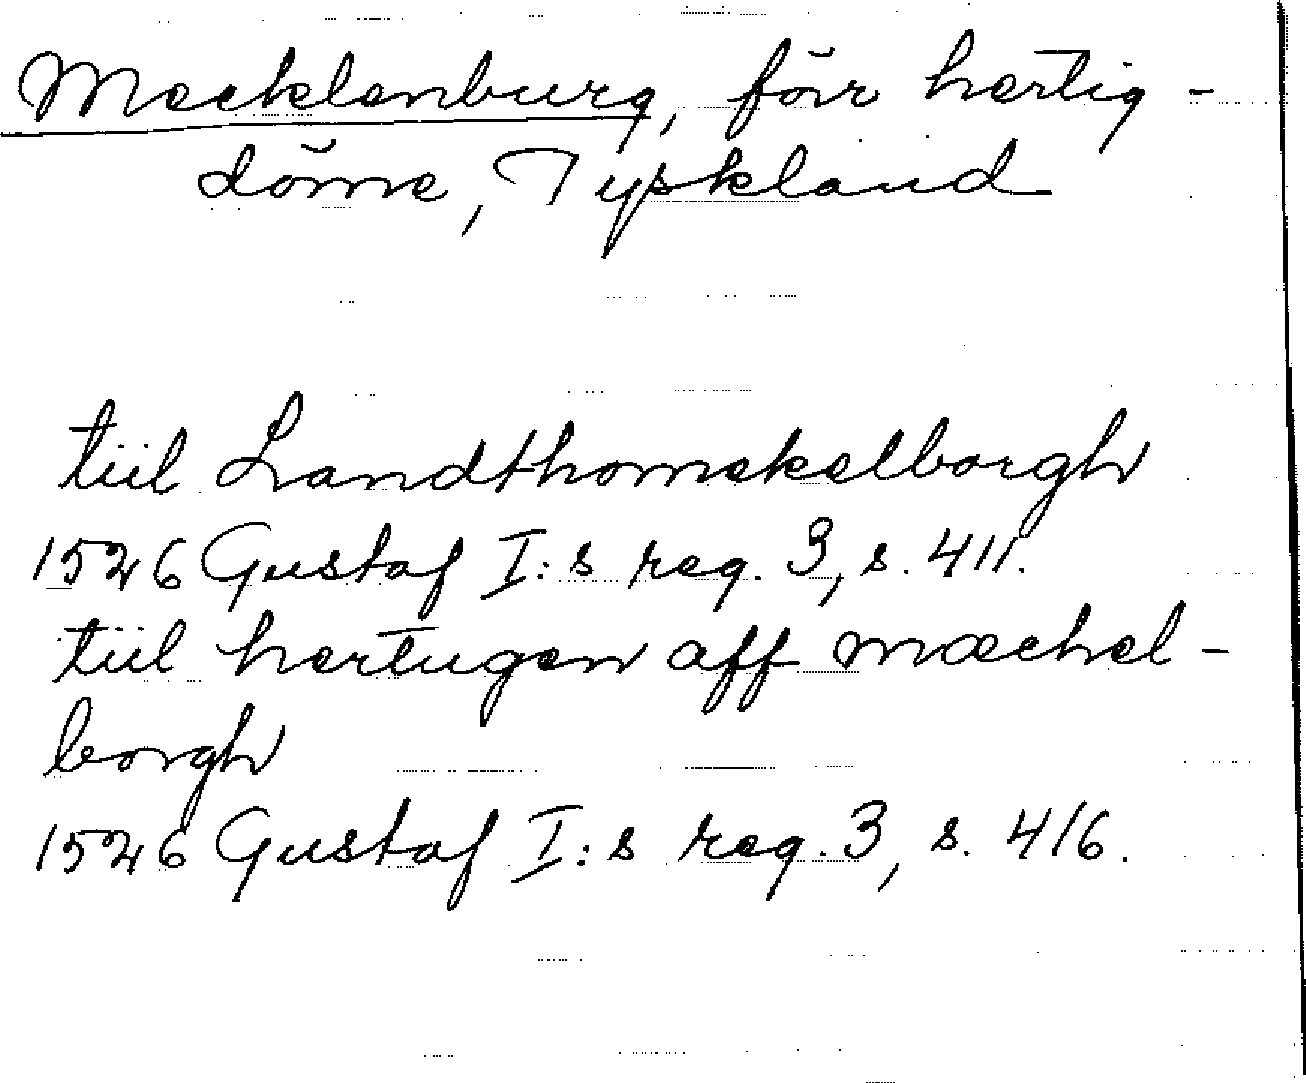 Mecklenburg, förr hertig-
döme, Tyskland
tiil Landthomekelborgh
1526 Gustaf I:s reg. 3, s. 411.
tiil hertugen aff mæchel-
borgh
1526 Gustaf I:s reg. 3, s. 416.